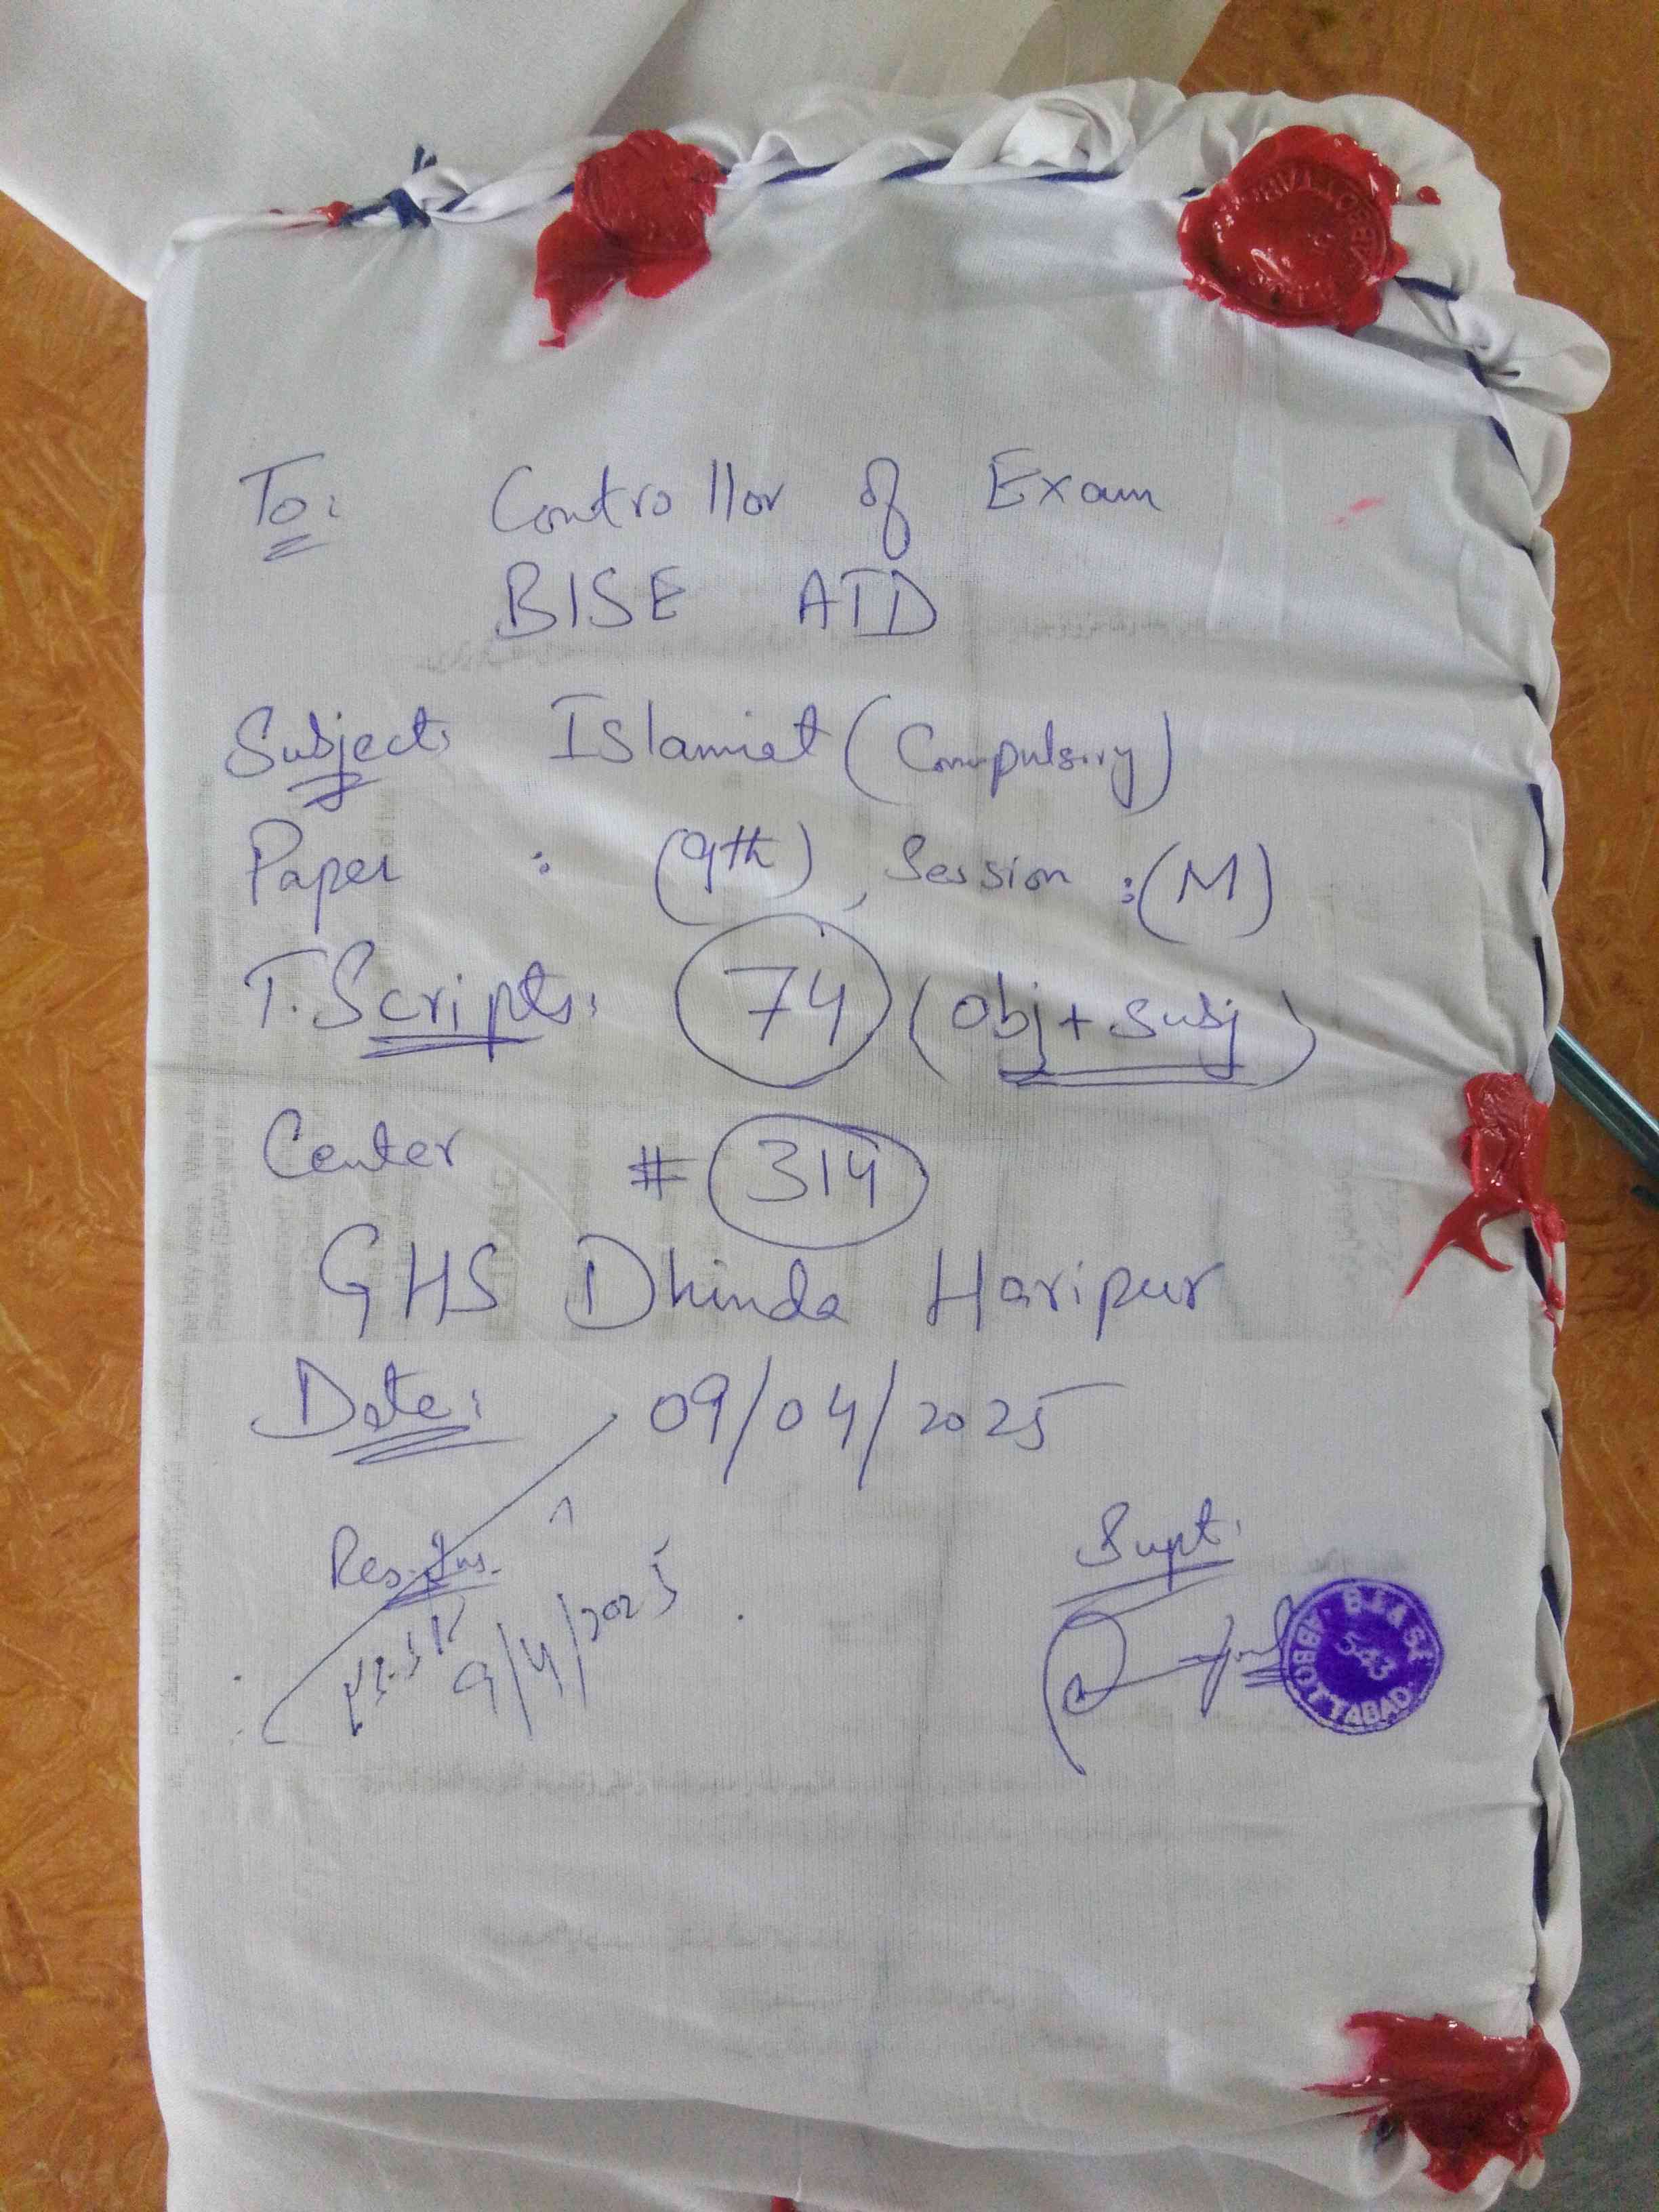 To: Controllor of Exam
BISE ATD
Subject: Islamiat (Compulsory)
Paper : (9th), Session :(M)
T.Scripts: 74 (Obj + Subj)
Center # 314
GHS Dhinda Haripur
Date: 09/04/2025
Res. Ins.
9/4/2025
Supt.
B.I.& S.E
543
ABBOTTABAD.